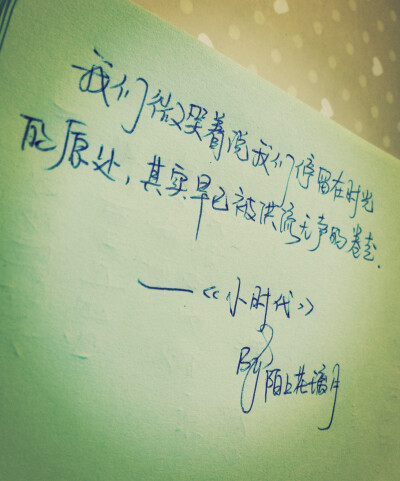 我们微笑着说我们停留在时光
的原处,其实早已被洪流无声的卷走.
——《小时代》
By 陌上花满月